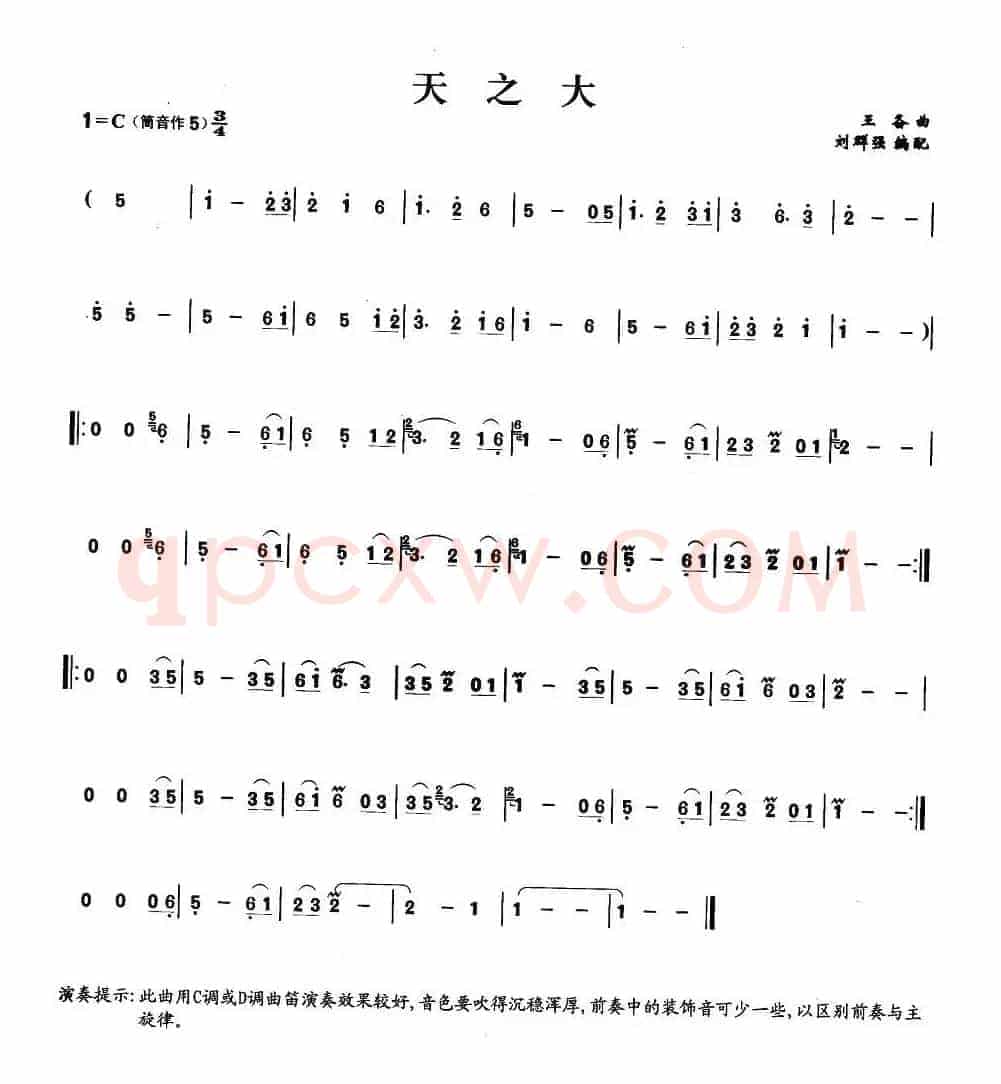 天之大
1=C（筒音作5）3/4
王备曲
刘群强 编配
( 5 | i - 2̇3̇ | 2̇ i 6 | i. 2̇ 6 | 5 - 05 | i. 2̇ 3̇i | 3̇ 6. 3̇ | 2̇ - - |
5̇ 5̇ - | 5 - 6i | 6 5 i2̇ | 3̇. 2̇ i6 | i - 6 | 5 - 6i | 2̇3̇ 2̇ i | i - - ) |
‖: 0 0 5 6̣ | 5̣ - 6̣1 | 6̣ 5̣ 12 | 2 3. 2 16̣ | 6 1 - 06̣ | 5̣ - 6̣1 | 23 2 01 | 1 2 - |
0 0 5 6̣ | 5̣ - 6̣1 | 6̣ 5̣ 12 | 2 3. 2 16̣ | 6 1 - 06̣ | 5̣ - 6̣1 | 23 2 01 | 1 - - :‖
qpcxw.COM
‖: 0 0 35 | 5 - 35 | 6i 6. 3 | 35 2 01 | 1 - 35 | 5 - 35 | 6i 6 03 | 2 - - |
0 0 35 | 5 - 35 | 6i 6 03 | 35 2 3. 2 | 2 1 - 06̣ | 5̣ - 6̣1 | 23 2 01 | 1 - - :‖
0 0 06̣ | 5̣ - 6̣1 | 23 2 - | 2 - 1 | 1 - - | 1 - - ‖
演奏提示：此曲用C调或D调曲笛演奏效果较好，音色要吹得沉稳浑厚，前奏中的装饰音可少一些，以区别前奏与主
旋律。